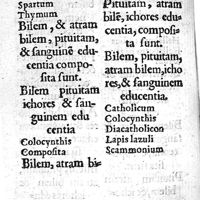 Spartum
Thymum
Bilem, & atram
bilem, pituitam,
& sanguinē edu
centia compo-
sita sunt.
Bilem pituitam
ichores & san-
guinem edu
centia
Colocynthis
Composita
Bilem, atram bi-
Pituitam, atram
bilē, ichores edu-
centia, composi-
ta sunt.
Bilem, pituitam,
atram bilem, icho
res, & sanguinem
educentia.
Catholicum
Colocynthis
Diacatholicon
Lapis lazuli
Scammonium